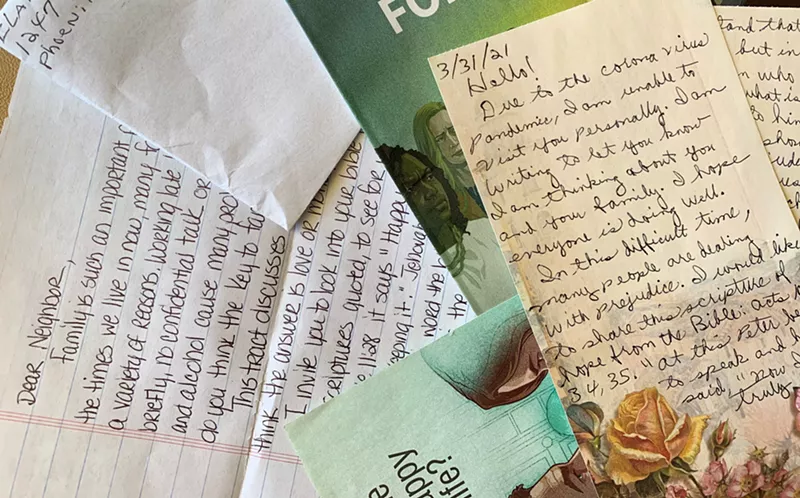 12
Phoeni
FO
DEAR NEIGHBOR,
Family is such an important
the times we live in now, many
a variety of reasons, working late
briefly, no confidential talk or
and alcohol cause many pro
do you think the key to
This tract discusses
think the answer is love or
I invite you to look into your bible
scriptures quoted, to see for
11:28 it says "Happy
eping it." Jehovah
Word the
the
life?
uppy
3/31/21
Hello!
Due to the corona virus
Pandemic, I am unable to
visit you personally. I am
writing to let you know
I am thinking about you
and your family. I hope
everyone is doing well.
In this difficult time,
many people are dealing
with prejudice. I would like
to share this scripture of
hope from the Bible: acts
34,35, "at this Peter be
to speak and h
said, "Now I
truly
and that
but in
who
what is
to him